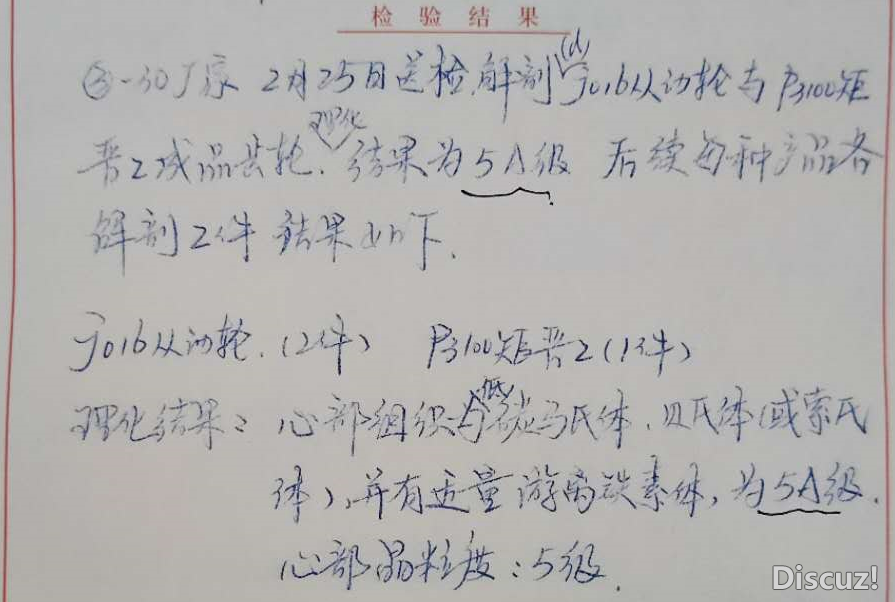 检验结果
2月25日送检,解剖 J016从动轮与P3100矩
晋2成品齿轮.理化结果为5A级 后续每种产品各
解剖2件 结果如下.
J016从动轮.(2件) P3100矩晋2(1件)
理化结果: 心部组织与低碳马氏体.贝氏体(或索氏
体),并有适量游离铁素体,为5A级.
心部晶粒度:5级.
Discuz!